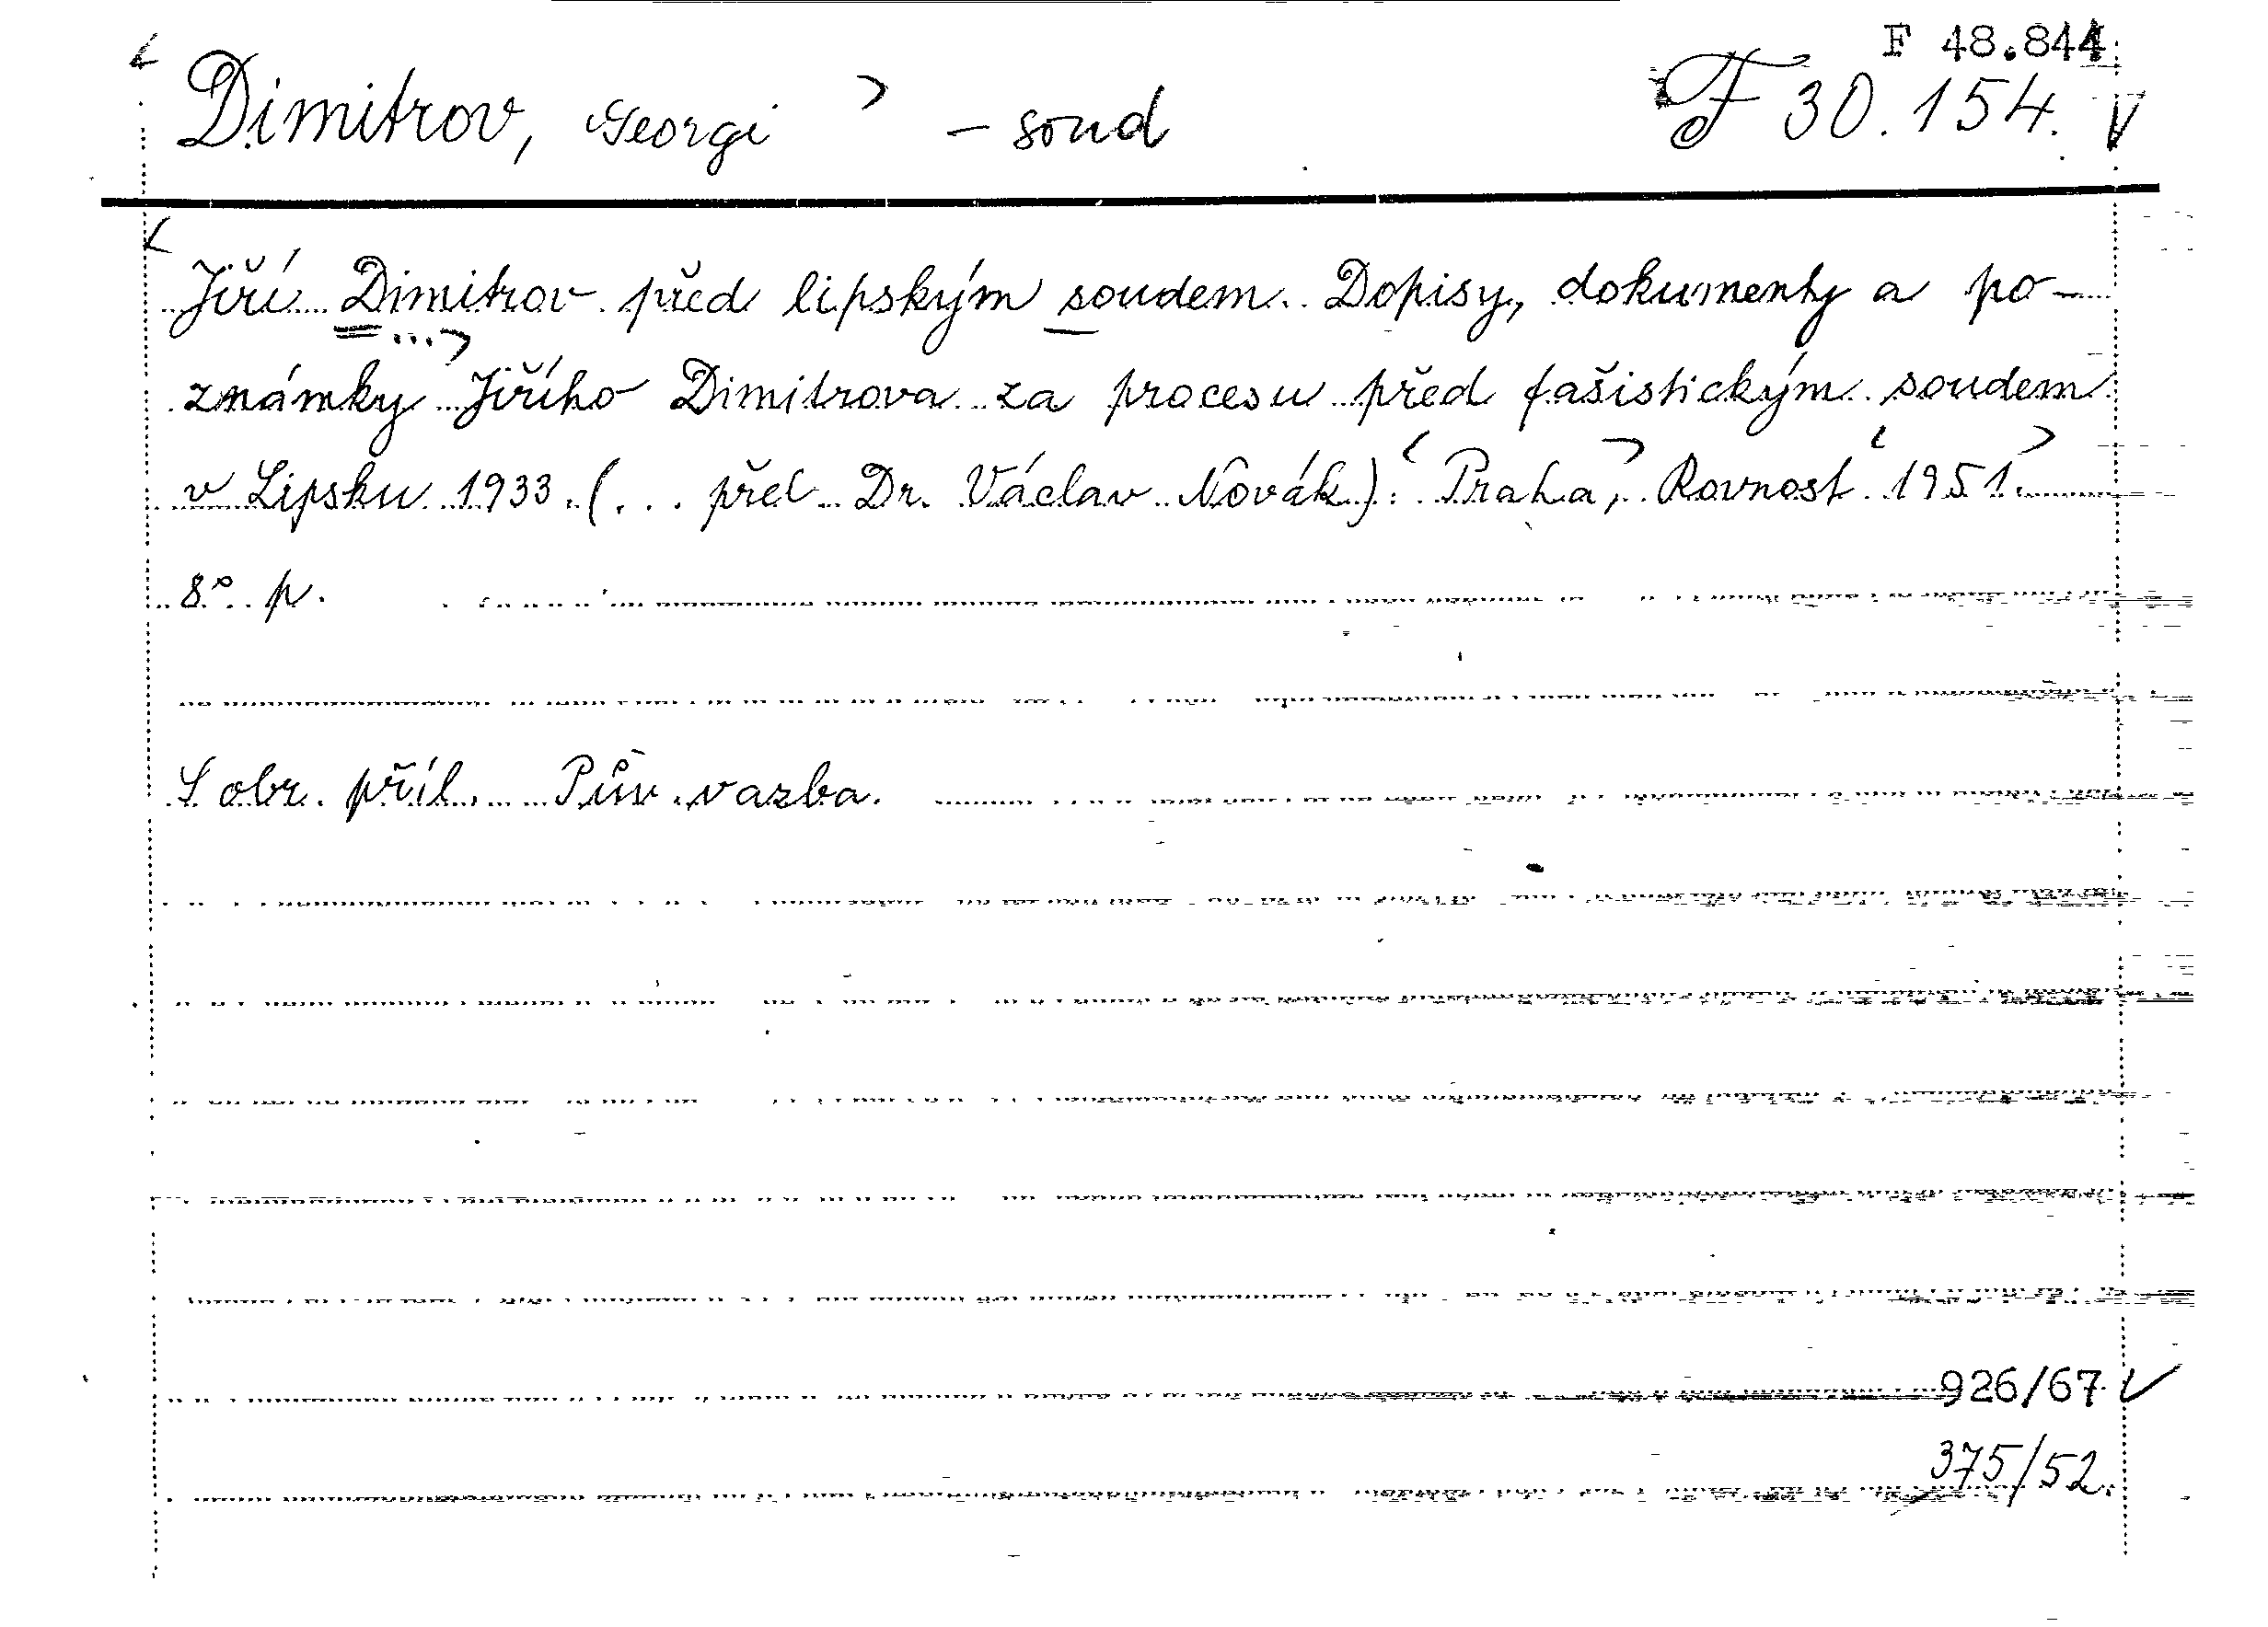 F 48.844
Dimitrov, Georgi - soud F 30.154.
Jiří Dimitrov před lipským soudem. Dopisy, dokumenty a po-
známky Jiřího Dimitrova za procesu před fašistickým soudem
v Lipsku 1933. (... přel Dr. Václav Novák). Praha, Rovnost 1951.
8° p.
S obr. příl. Pův. vazba.
926/67
375/52.